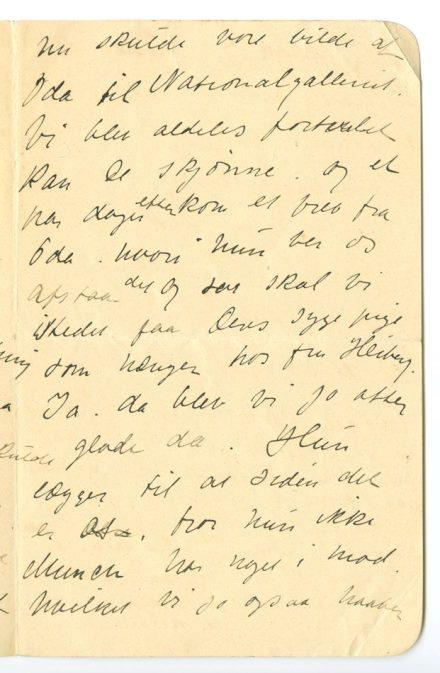 nu skulde vore bilde af
Oda til Nationalgalleriet.
Vi blev aldeles fortvilet
kan De skjønne. og et
par dager efter kom et brev fra
Oda. hvori hun ber os
afstaa det og saa skal vi
istedet faa Deres syge pige
som hænger hos fru Heiberg.
Ja. da blev vi jo atter
glade da. Hun
lægger til at siden det
er os, tror hun ikke
Munch har noget i mod.
hvilket vi jo ogsaa haaber